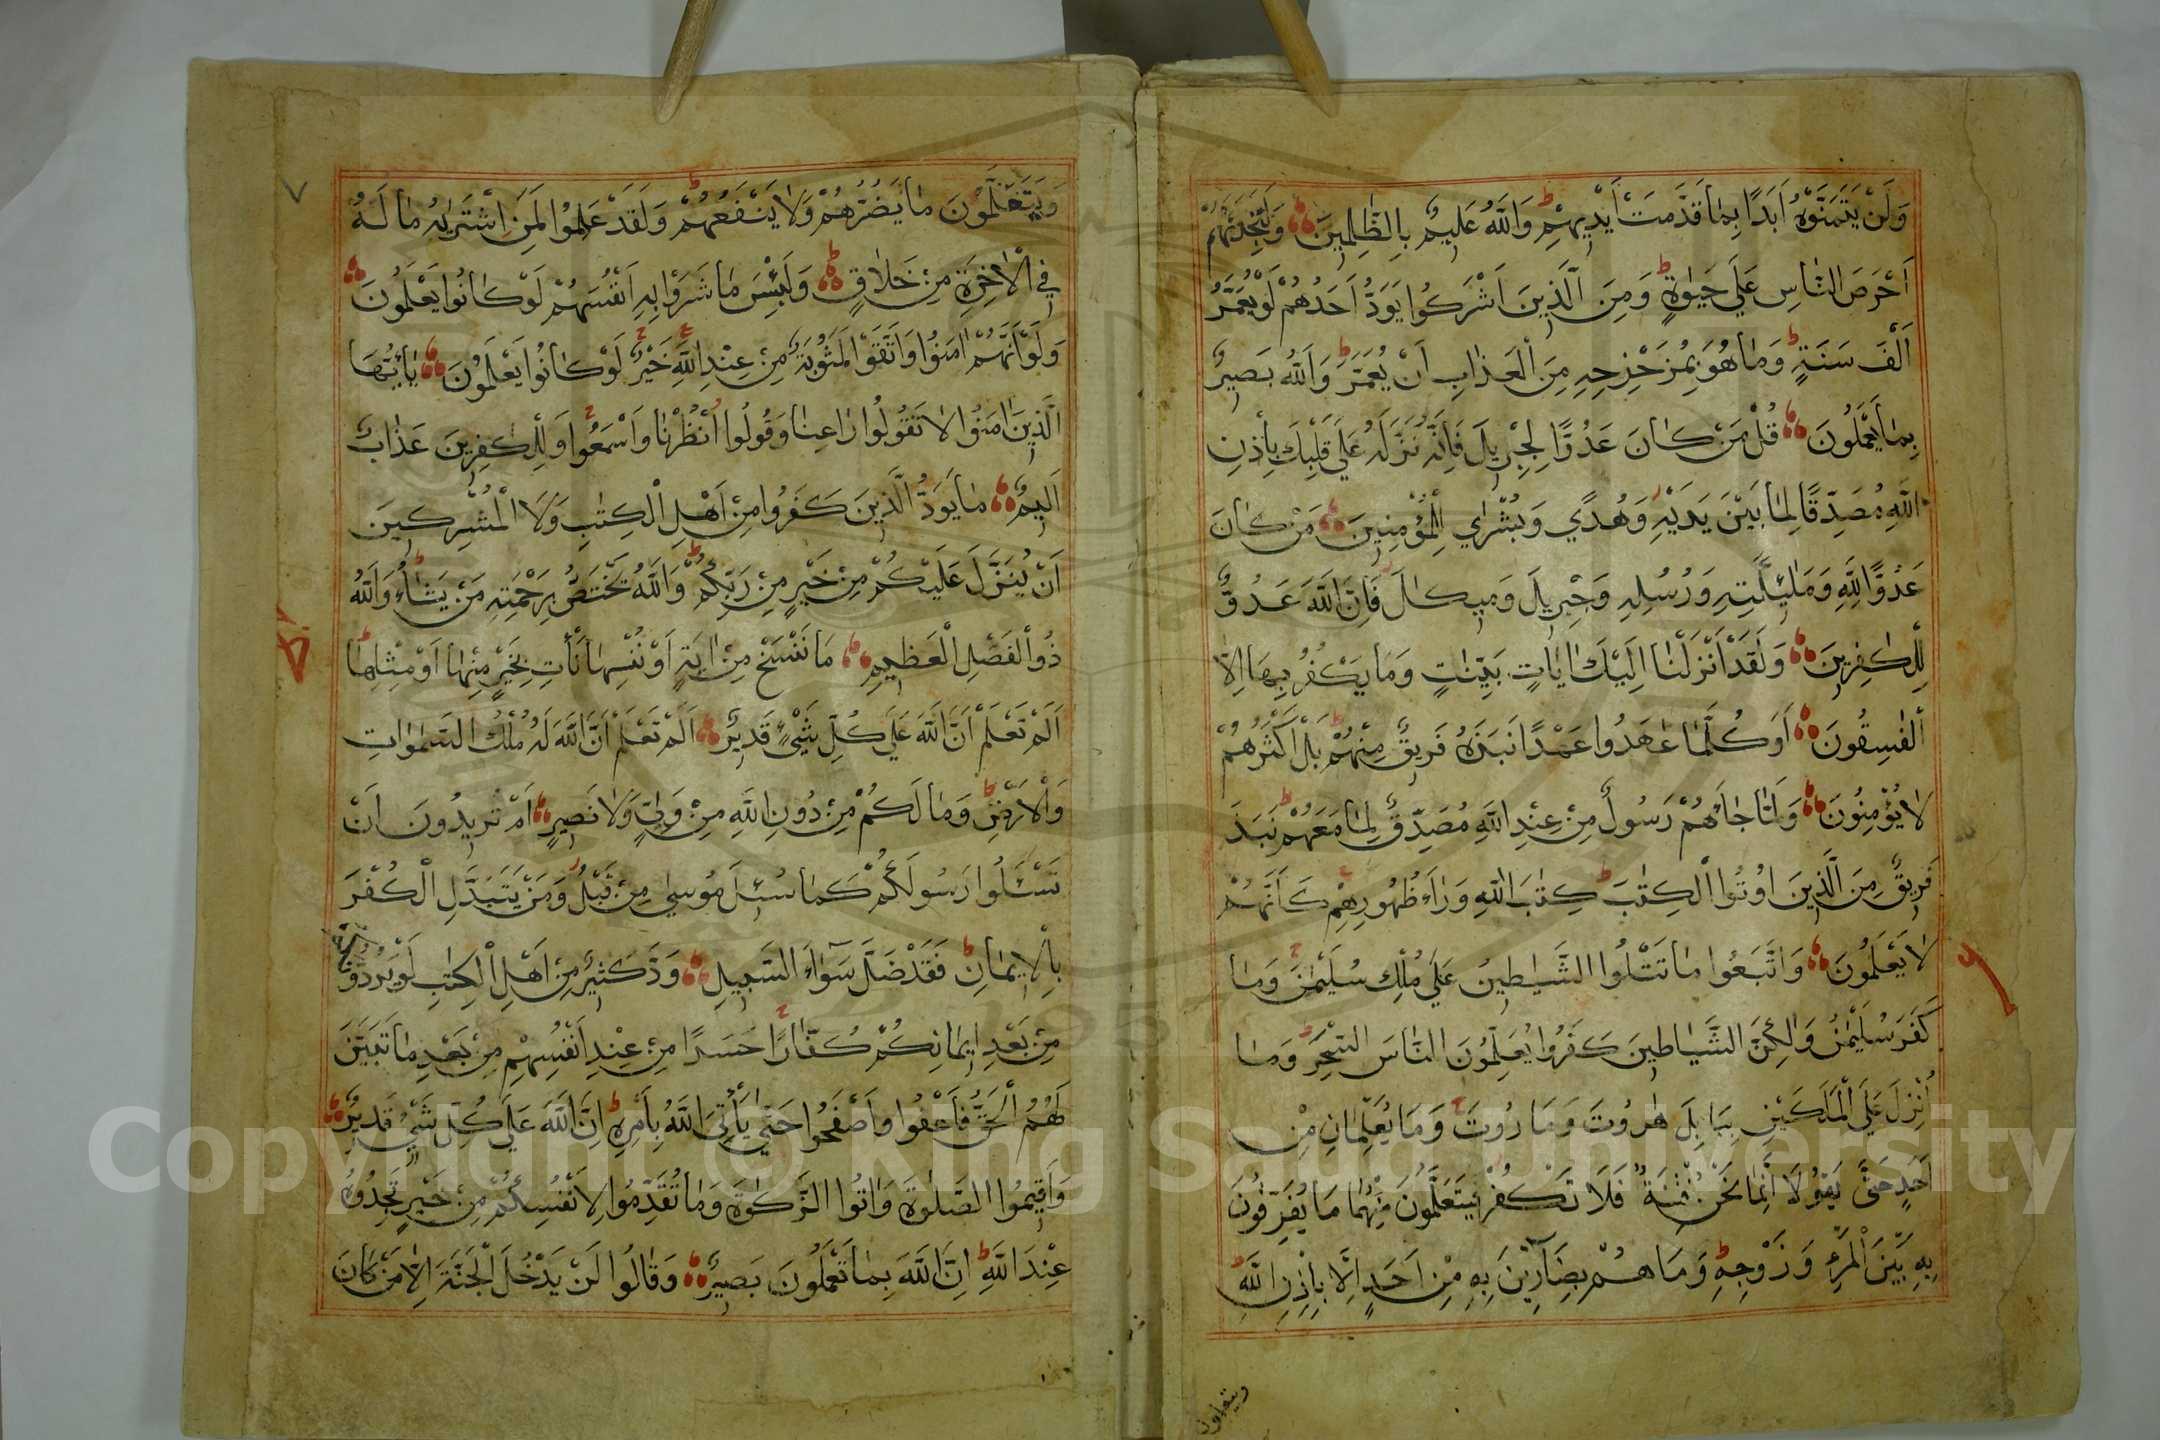 وَلَنْ يَتَمَنَّوْهُ اَبَدًا بِمَا قَدَّمَتْ اَيْدِيهِمْ وَاللّٰهُ عَلِيمٌ بِالظّٰلِمِينَ وَلَتَجِدَنَّهُمْ
اَحْرَصَ النَّاسِ عَلٰي حَيٰوةٍ وَمِنَ الَّذِينَ اَشْرَكُوا يَوَدُّ اَحَدُهُمْ لَوْ يُعَمَّرُ
اَلْفَ سَنَةٍ وَمَا هُوَ بِمُزَحْزِحِهِ مِنَ الْعَذَابِ اَنْ يُعَمَّرَ وَاللّٰهُ بَصِيرٌ
بِمَا يَعْمَلُونَ قُلْ مَنْ كَانَ عَدُوًّا لِجِبْرِيلَ فَاِنَّهُ نَزَّلَهُ عَلٰي قَلْبِكَ بِاِذْنِ
اللّٰهِ مُصَدِّقًا لِمَا بَيْنَ يَدَيْهِ وَهُدًي وَبُشْرٰي لِلْمُؤْمِنِينَ مَنْ كَانَ
عَدُوًّا لِلّٰهِ وَمَلٰئِكَتِهِ وَرُسُلِهِ وَجِبْرِيلَ وَمِيكَالَ فَاِنَّ اللّٰهَ عَدُوٌّ
لِلْكٰفِرِينَ وَلَقَدْ اَنْزَلْنَا اِلَيْكَ اٰيَاتٍ بَيِّنَاتٍ وَمَا يَكْفُرُ بِهَا اِلَّا
الْفٰسِقُونَ اَوَكُلَّمَا عٰهَدُوا عَهْدًا نَبَذَهُ فَرِيقٌ مِنْهُمْ بَلْ اَكْثَرُهُمْ
لَا يُؤْمِنُونَ وَلَمَّا جَاءَهُمْ رَسُولٌ مِنْ عِنْدِ اللّٰهِ مُصَدِّقٌ لِمَا مَعَهُمْ نَبَذَ
فَرِيقٌ مِنَ الَّذِينَ اُوتُوا الْكِتٰبَ كِتٰبَ اللّٰهِ وَرَاءَ ظُهُورِهِمْ كَاَنَّهُمْ
لَا يَعْلَمُونَ وَاتَّبَعُوا مَا تَتْلُوا الشَّيَاطِينُ عَلٰي مُلْكِ سُلَيْمٰنَ وَمَا
كَفَرَ سُلَيْمٰنُ وَلٰكِنَّ الشَّيَاطِينَ كَفَرُوا يُعَلِّمُونَ النَّاسَ السِّحْرَ وَمَا
اُنْزِلَ عَلَي الْمَلَكَيْنِ بِبَابِلَ هٰرُوتَ وَمَارُوتَ وَمَا يُعَلِّمَانِ مِنْ
اَحَدٍ حَتّٰي يَقُولَا اِنَّمَا نَحْنُ فِتْنَةٌ فَلَا تَكْفُرْ فَيَتَعَلَّمُونَ مِنْهُمَا مَا يُفَرِّقُونَ
بِهِ بَيْنَ الْمَرْءِ وَزَوْجِهِ وَمَا هُمْ بِضَآرِّينَ بِهِ مِنْ اَحَدٍ اِلَّا بِاِذْنِ اللّٰهِ
ويتعلمون
٧
وَيَتَعَلَّمُونَ مَا يَضُرُّهُمْ وَلَا يَنْفَعُهُمْ وَلَقَدْ عَلِمُوا لَمَنِ اشْتَرٰيهُ مَا لَهُ
فِي الْاٰخِرَةِ مِنْ خَلَاقٍ وَلَبِئْسَ مَا شَرَوْا بِهِ اَنْفُسَهُمْ لَوْ كَانُوا يَعْلَمُونَ
وَلَوْ اَنَّهُمْ اٰمَنُوا وَاتَّقَوْا لَمَثُوبَةٌ مِنْ عِنْدِ اللّٰهِ خَيْرٌ لَوْ كَانُوا يَعْلَمُونَ يَا اَيُّهَا
الَّذِينَ اٰمَنُوا لَا تَقُولُوا رَاعِنَا وَقُولُوا انْظُرْنَا وَاسْمَعُوا وَلِلْكٰفِرِينَ عَذَابٌ
اَلِيمٌ مَا يَوَدُّ الَّذِينَ كَفَرُوا مِنْ اَهْلِ الْكِتٰبِ وَلَا الْمُشْرِكِينَ
اَنْ يُنَزَّلَ عَلَيْكُمْ مِنْ خَيْرٍ مِنْ رَبِّكُمْ وَاللّٰهُ يَخْتَصُّ بِرَحْمَتِهِ مَنْ يَشَاءُ وَاللّٰهُ
ذُو الْفَضْلِ الْعَظِيمِ مَا نَنْسَخْ مِنْ اٰيَةٍ اَوْ نُنْسِهَا نَأْتِ بِخَيْرٍ مِنْهَا اَوْ مِثْلِهَا
اَلَمْ تَعْلَمْ اَنَّ اللّٰهَ عَلٰي كُلِّ شَيْءٍ قَدِيرٌ اَلَمْ تَعْلَمْ اَنَّ اللّٰهَ لَهُ مُلْكُ السَّمٰوَاتِ
وَالْاَرْضِ وَمَا لَكُمْ مِنْ دُونِ اللّٰهِ مِنْ وَلِيٍّ وَلَا نَصِيرٍ اَمْ تُرِيدُونَ اَنْ
تَسْئَلُوا رَسُولَكُمْ كَمَا سُئِلَ مُوسٰي مِنْ قَبْلُ وَمَنْ يَتَبَدَّلِ الْكُفْرَ
بِالْاِيمَانِ فَقَدْ ضَلَّ سَوَاءَ السَّبِيلِ وَدَّ كَثِيرٌ مِنْ اَهْلِ الْكِتٰبِ لَوْ يَرُدُّونَكُمْ
مِنْ بَعْدِ اِيمَانِكُمْ كُفَّارًا حَسَدًا مِنْ عِنْدِ اَنْفُسِهِمْ مِنْ بَعْدِ مَا تَبَيَّنَ
لَهُمُ الْحَقُّ فَاعْفُوا وَاصْفَحُوا حَتّٰي يَأْتِيَ اللّٰهُ بِاَمْرِهِ اِنَّ اللّٰهَ عَلٰي كُلِّ شَيْءٍ قَدِيرٌ
وَاَقِيمُوا الصَّلٰوةَ وَاٰتُوا الزَّكٰوةَ وَمَا تُقَدِّمُوا لِاَنْفُسِكُمْ مِنْ خَيْرٍ تَجِدُوهُ
عِنْدَ اللّٰهِ اِنَّ اللّٰهَ بِمَا تَعْمَلُونَ بَصِيرٌ وَقَالُوا لَنْ يَدْخُلَ الْجَنَّةَ اِلَّا مَنْ كَانَ
Copyright © King Saud University